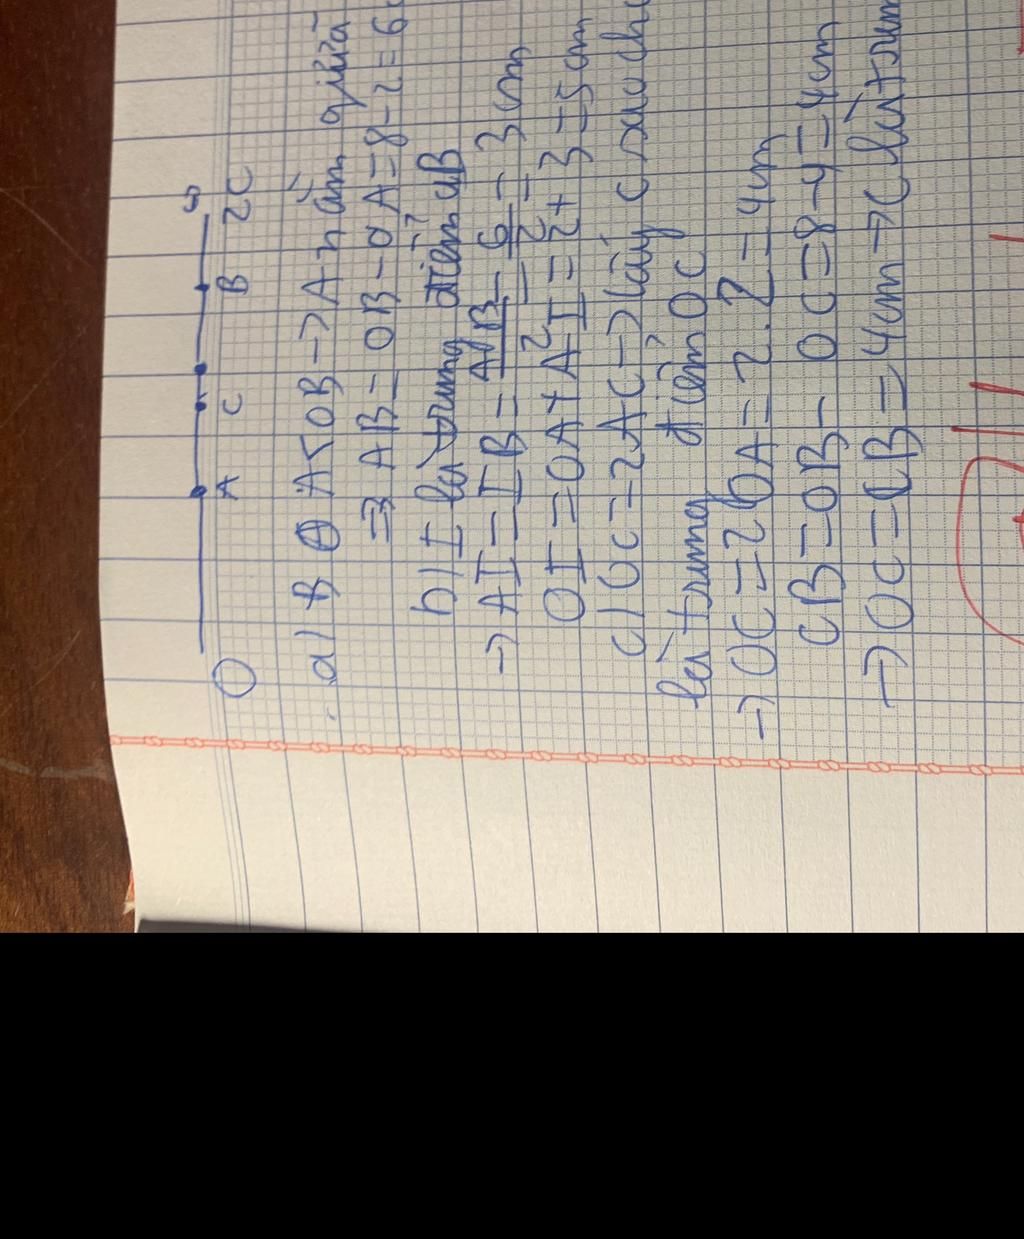 A C B x
a) OA<OB → A nằm giữa
⇒ AB = OB - OA = 8 - 2 = 6
b) I là trung điểm AB
→ AI = IB = AB/2 = 6/2 = 3 cm
OI = OA + AI = 2 + 3 = 5 cm
c) OC = 2AC → lấy C sao ch
là trung điểm OC
→ OC = 2OA = 2.2 = 4cm
CB = OB - OC = 8 - 4 = 4cm
→ OC = CB = 4cm → C là trun